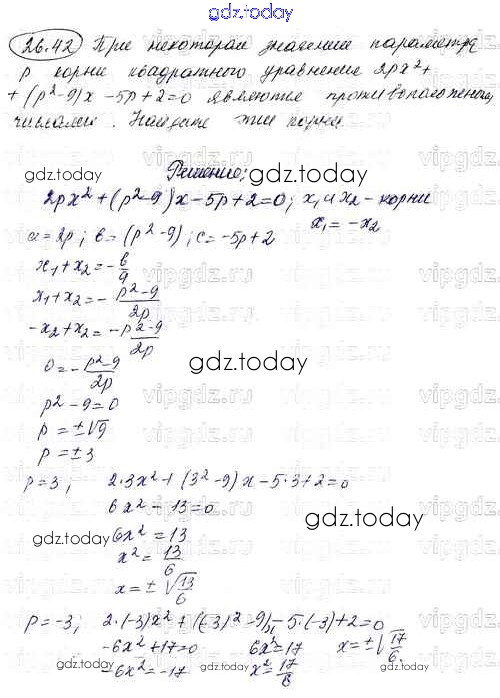 gdz.today
26.42 При некотором значении параметра
p корни квадратного уравнения 2px²+
+(p²-9)x-5p+2=0 являются противоположными
числами. Найдите эти корни.
Решение:
gdz.today
2px²+(p²-9)x-5p+2=0; x₁ и x₂ - корни
a=2p; в=(p²-9); c=-5p+2
x₁=-x₂
x₁+x₂=-в/a
x₁+x₂=-(p²-9)/2p
-x₂+x₂=-(p²-9)/2p
gdz.today
0=-(p²-9)/2p
p²-9=0
p=±√9
p=±3
p=3; 2·3x²+(3²-9)x-5·3+2=0
6x²-13=0
gdz.today
gdz.today
6x²=13
x²=13/6
x=±√13/6
p=-3; 2·(-3)x²+((-3)²-9)x-5·(-3)+2=0
-6x²+17=0 6x²=17 x=±√17/6
-6x²=-17 x²=17/6
gdz.today
gdz.today